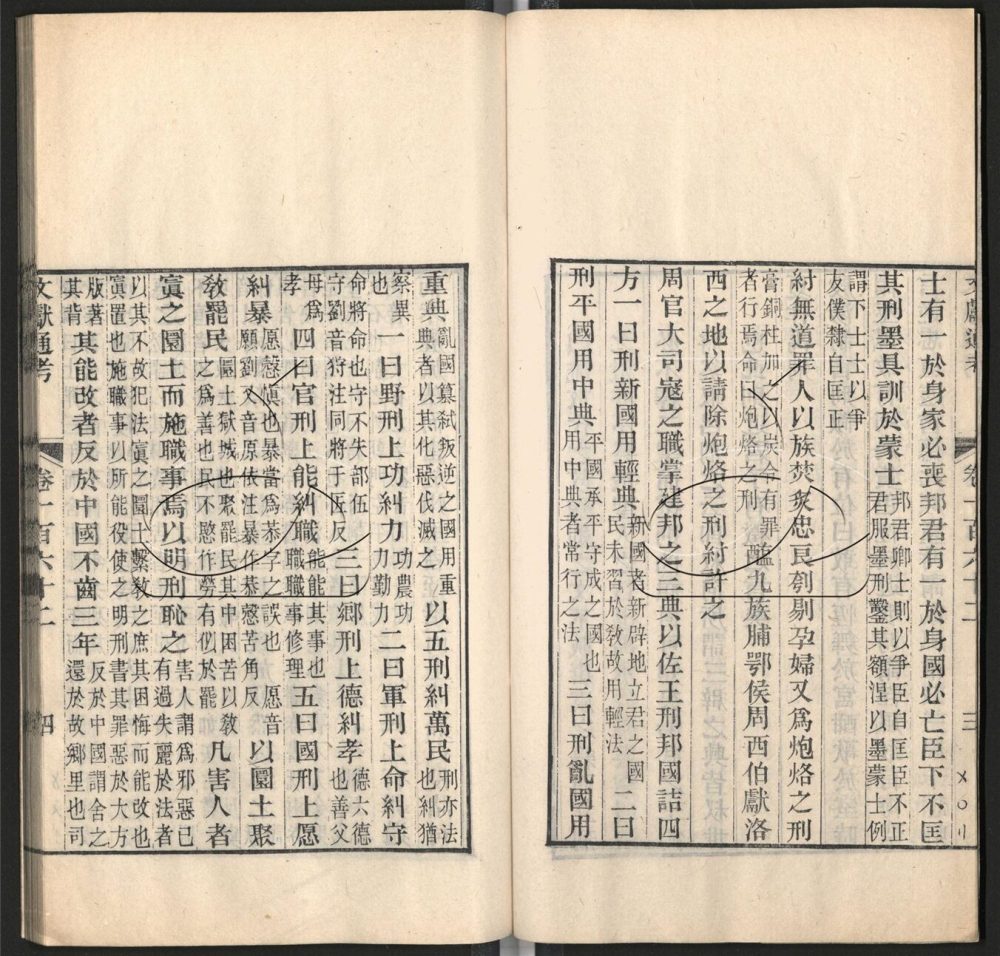 文獻通考 卷一百六十二 三
士有一於身家必喪邦君有一於身國必亡臣下不匡
其刑墨具訓於蒙士邦君卿士則以爭臣自匡臣不正君服墨刑鑿其額涅以墨蒙士例
謂下士士以爭友僕隸自匡正
紂無道罪人以族焚炙忠良刳剔孕婦又爲炮烙之刑
膏銅柱加之以炭令有罪者行焉命曰炮烙之刑醢九族脯鄂侯周西伯獻洛
西之地以請除炮烙之刑紂許之
周官大司寇之職掌建邦之三典以佐王刑邦國詰四
方一曰刑新國用輕典新國者新辟地立君之國民未習於敎故用輕法二曰
刑平國用中典平國承平守成之國也用中典者常行之法三曰刑亂國用
重典亂國簒弑叛逆之國用重典者以其化惡伐滅之以五刑糾萬民刑亦法也糾猶
察異也一曰野刑上功糾力功農功力勤力二曰軍刑上命糾守
命將命也守不失部伍守劉音狩注同將于匠反三曰鄉刑上德糾孝德六德也善父
母爲孝四曰官刑上能糾職能能其事也職職事修理五曰國刑上愿
糾暴愿慤愼也暴當爲恭字之誤也愿音願劉又音原依注暴作恭慤苦角反以圜土聚
敎罷民圜土獄城也聚罷民其中困苦以敎之爲善也民不愍作勞有似於罷凡害人者
寘之圜土而施職事焉以明刑恥之害人謂爲邪惡已有過失麗於法者
以其不故犯法寘之圜土繫敎之庶其困悔而能改也寘置也施職事以所能役使之明刑書其罪惡於大方
版著其背其能改者反於中國不齒三年反於中國謂舍之還於故鄉里也司
文獻通考 卷一百六十二 四